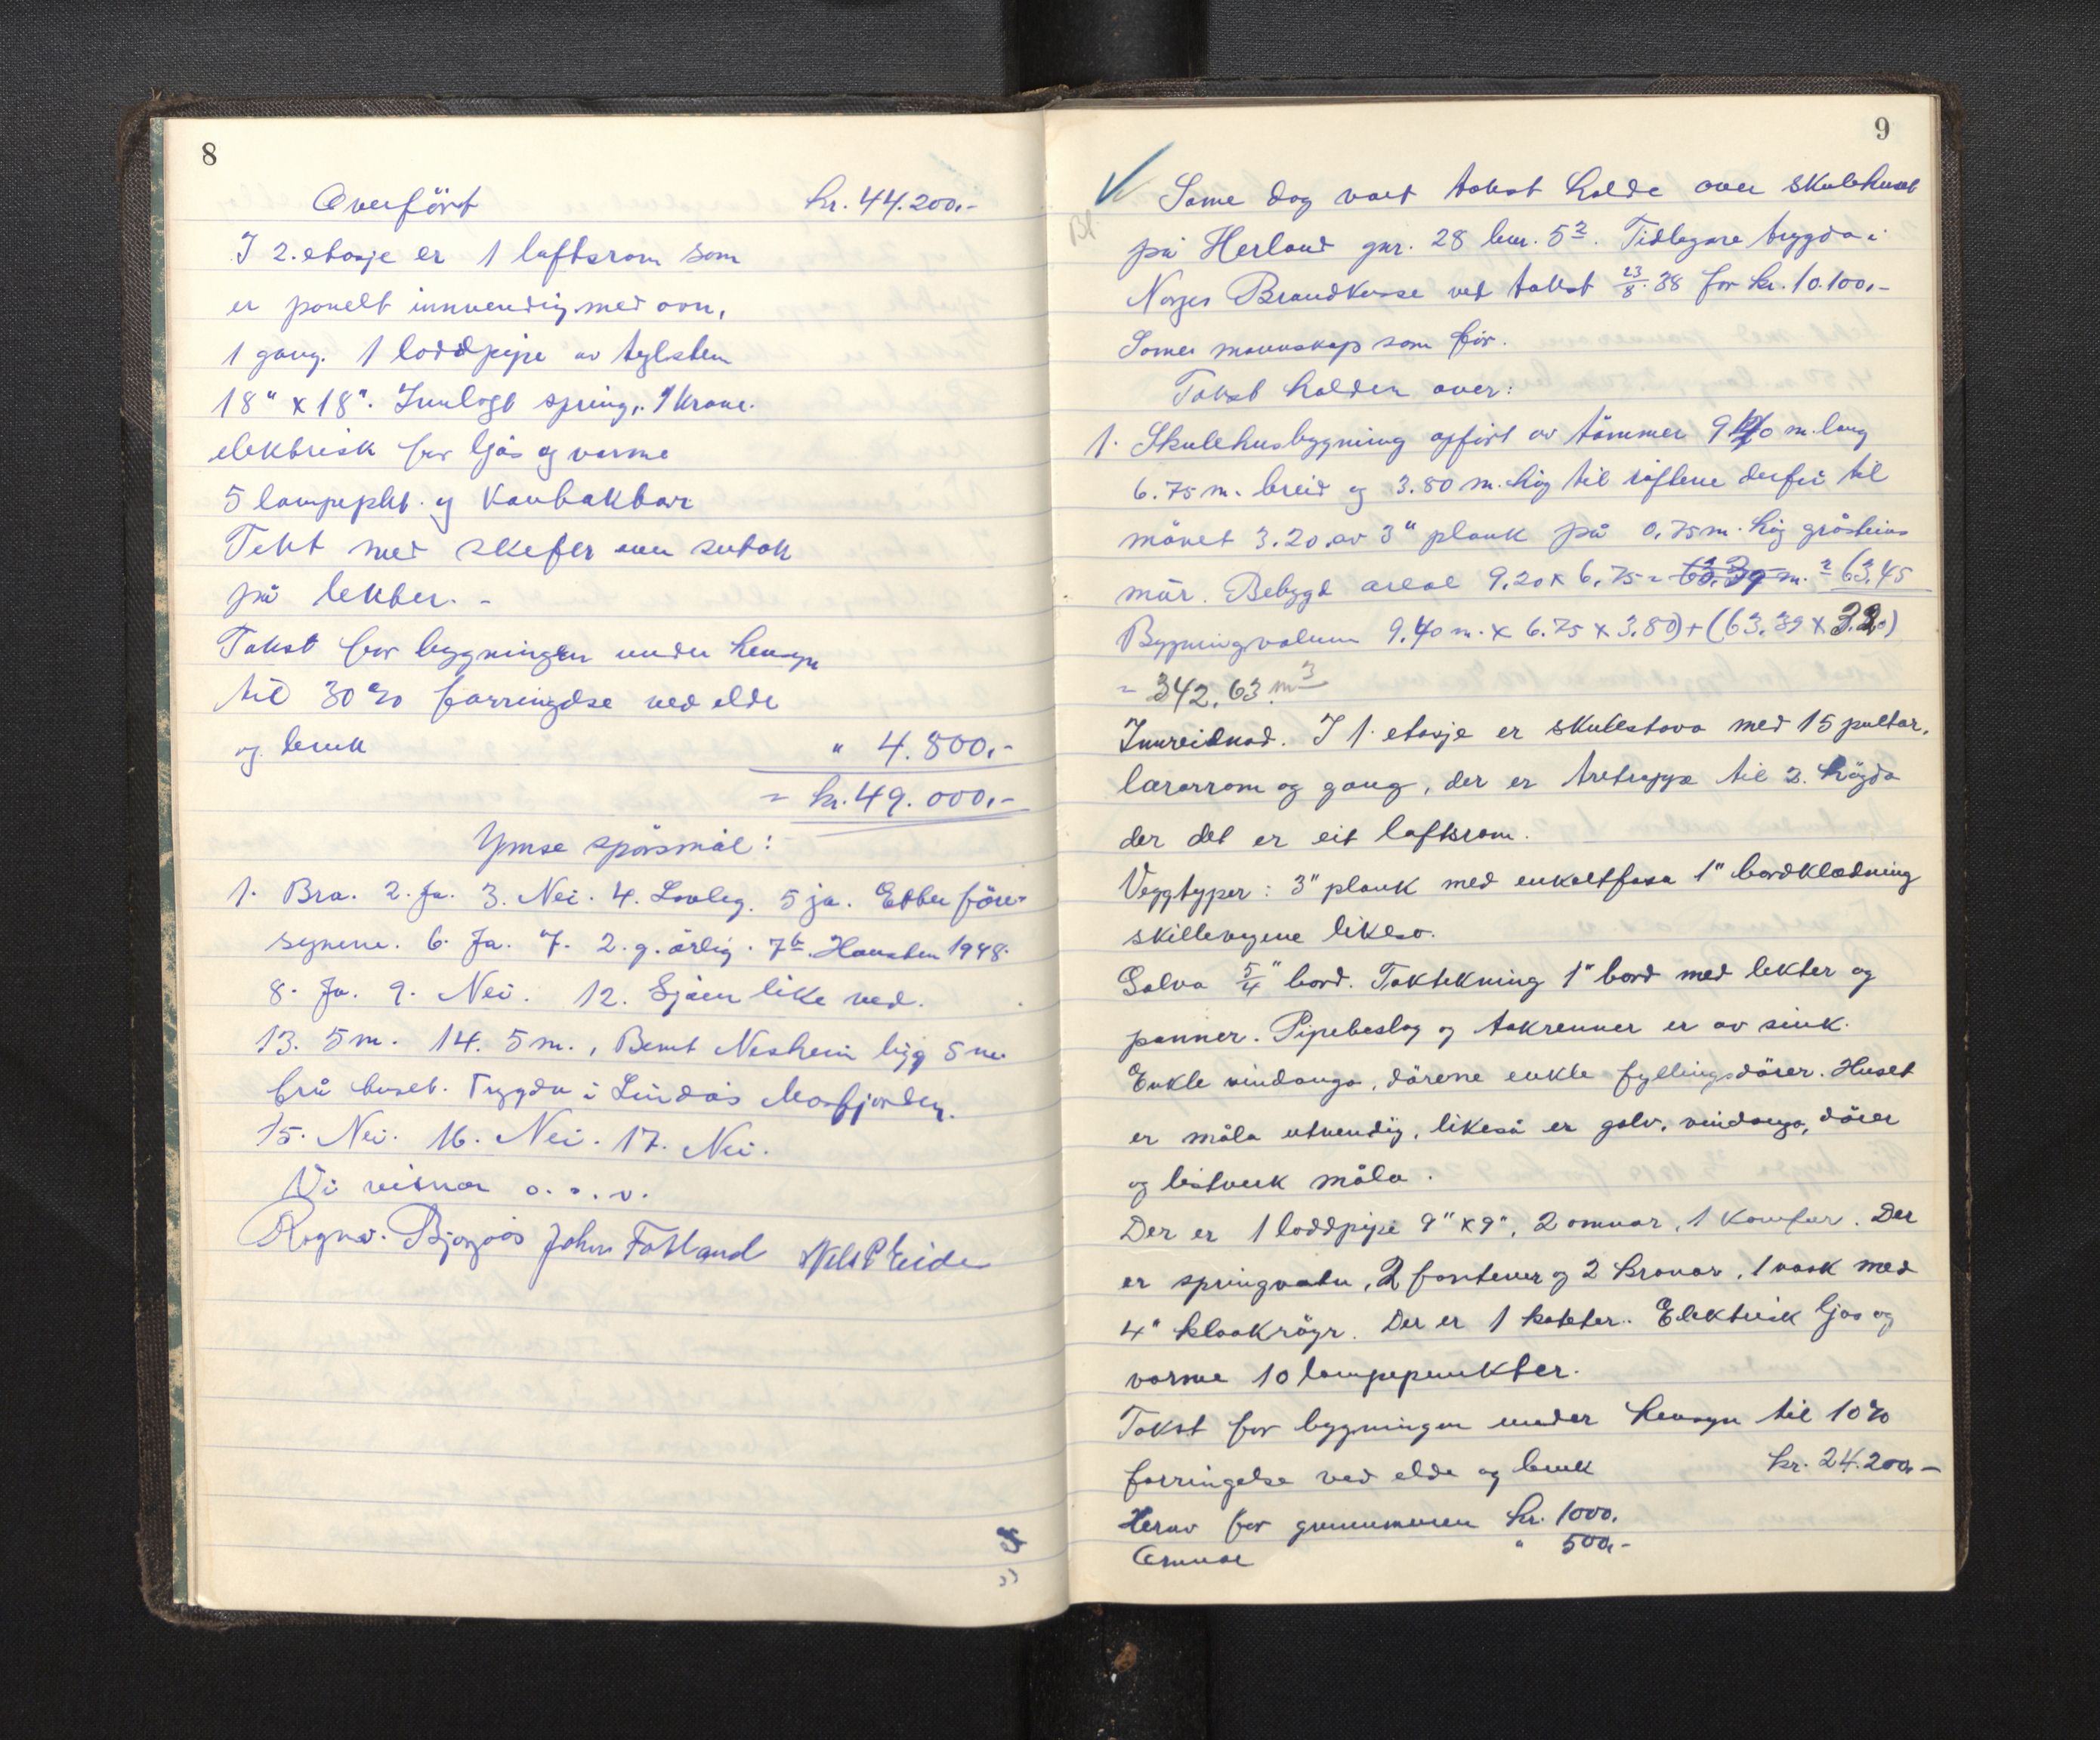 8
Overfört kr. 44.200,-
I 2. etasje er 1 loftsrom som
er panelt innvendig med ovn,
1 gang. 1 loddpipe av teglsten
18" x 18". Innlagt spring, 1 krane.
elektrisk for ljós og varme
5 lampepkt. og
Tekt med skefer over sutak
på lekter. -
Takst for bygningen under hensyn
til 30% forringelse ved elde
og bruk " 4.800,-
= kr. 49.000,-
Ymse spörsmål:
1. Bra. 2. Ja. 3. Nei. 4. Lovleg. 5 ja. Etter före-
segnene. 6. Ja. 7. 2. g. årlig. 7b. Hausten 1948.
8. Ja. 9. Nei. 12. Sjöen like ved.
13. 5 m. 14. 5 m., Bernt Neshein bygg 5 m.
frå huset. Trygda i Lindås Masfjorden.
15. Nei. 16. Nei. 17. Nei.
Vi vitnar o. s. v.
Ragnv. Bjørgås John Fatland Nils P Eide
9
Same dag vart takst halde over skulehuset
på Herland gnr. 28 bnr. 5². Tidlegare trygda i
Norges Brandkasse ved takst 23/8.38 for kr. 10.100,-
Sames mannskap som för.
Takst halden over:
1. Skulehusbygning opfört av tömmer 9.40 m. lang
6.75 m. breid og 3.80 m. hög til raftene derfrå til
mönet 3.20. av 3" plank på 0,75 m. hög gråsteins
mür. Bebygd areal 9.20 x 6,75 = 63.39 m.² = 63,45
Bygningsvolum 9.40 m. x 6.75 x 3.80) + (63.39 x 3.20)
= 342,63 m³
Innreidnad. I 1. etasje er skulestova med 15 pultar,
lærarrom og gang, der er tretrapp til 2. högda
der det er eit loftsrom.
Veggtyper: 3" plank med enkeltfasa 1" bordklædning
skilleveggene likeso.
Golva 5/4" bord. Taktekning 1" bord med lekter og
panner. Pipebeslag og takrenner er av sink.
Enkle vindauga, dörene enkle fyllingsdörer. Huset
er måla utvendig, likeså er golv, vindauga, dörer
og listverk måla.
Der er 1 loddpipe 9" x 9", 2 omnar, 1 komfur. Der
er springvatn, 2 fontener og 2 kranar, 1 vask med
4" kloakrögr. Der er 1 Elektrisk ljos og
varme 10 lampepunkter.
Takst for bygningen under hensyn til 10%
forringelse ved elde og bruk kr. 24.200,-
Herav for grunnmuren kr. 1000.
Omnar " 500,-